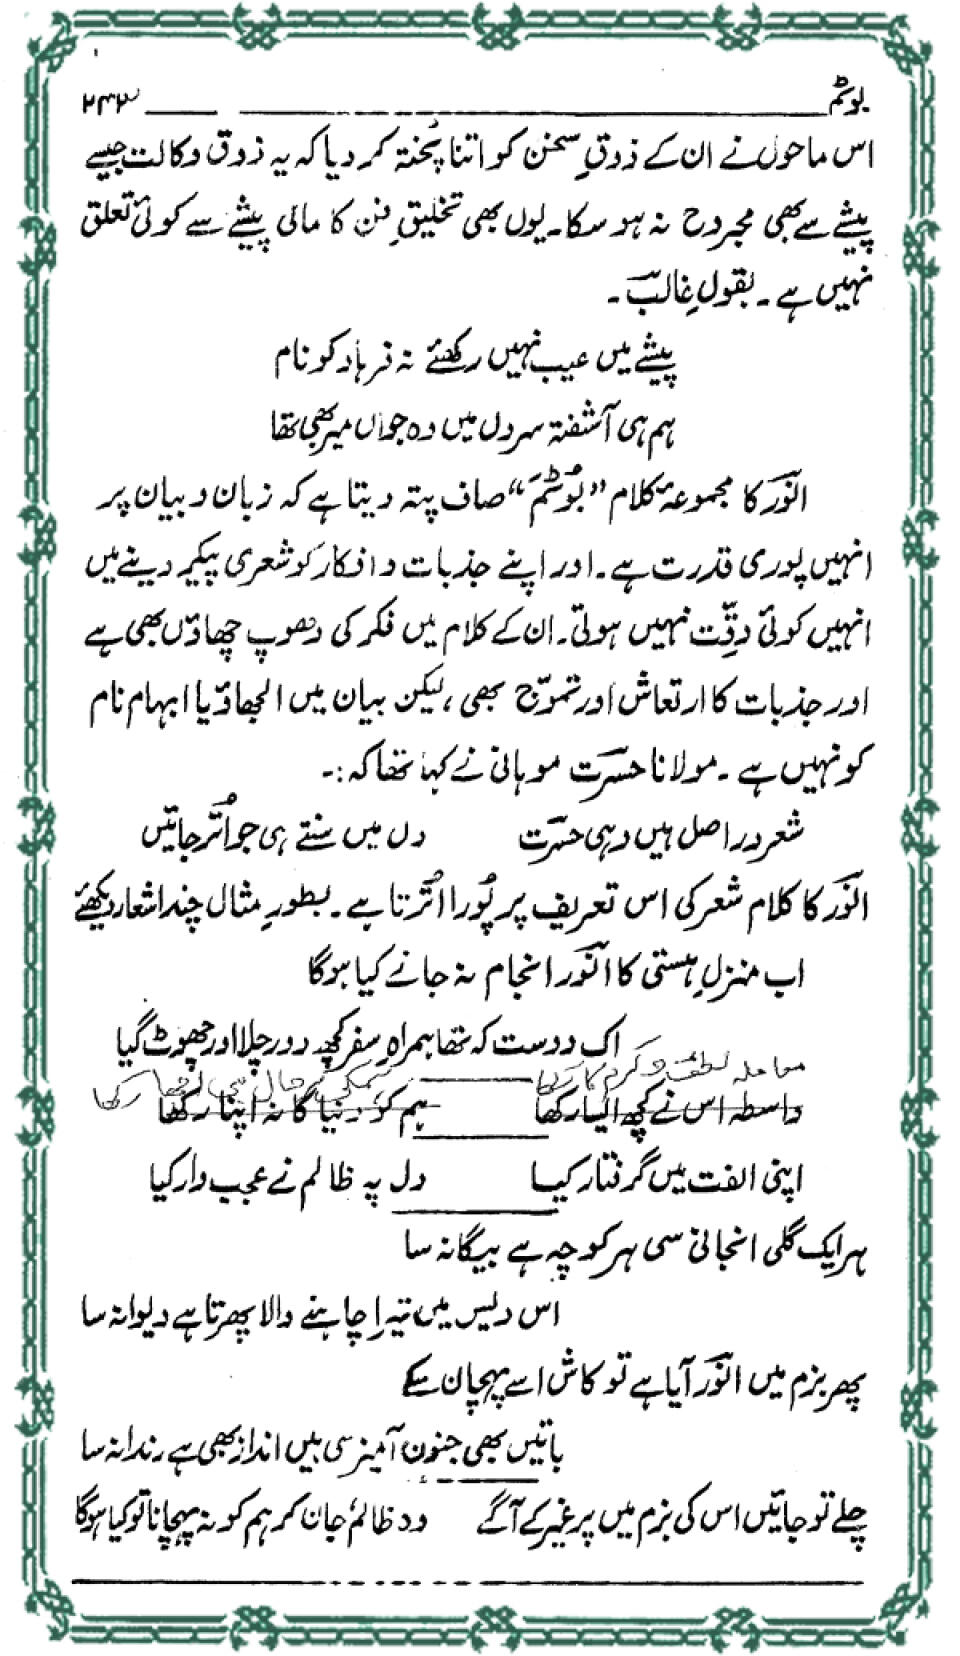 بوٹم ۲۴۳
اس ماحول نے ان کے ذوقِ سخن کو اتنا پُختہ کر دیا کہ یہ ذوق وکالت جیسے
پیشے سے بھی مجروح نہ ہو سکا۔ یوں بھی تخلیقِ فن کا مالی پیشے سے کوئی تعلق
نہیں ہے۔ بقولِ غالبؔ۔
پیشے میں عیب نہیں رکھئے نہ فرہاد کو نام
ہم ہی آشفتہ سروں میں وہ جواں میر بھی تھا
انوؔر کا مجموعۂ کلام ”بُوٹم“ صاف پتہ دیتا ہے کہ زبان و بیان پر
انہیں پوری قدرت ہے۔ اور اپنے جذبات و افکار کو شعری پیکر دینے میں
انہیں کوئی دِقّت نہیں ہوتی۔ ان کے کلام میں فکر کی دھوپ چھاؤں بھی ہے
اور جذبات کا ارتعاش اور تموّج بھی، لیکن بیان میں الجھاؤ یا ابہام نام
کو نہیں ہے۔ مولانا حسرتؔ موہانی نے کہا تھا کہ :۔
شعر دراصل ہیں وہی حسرتؔ دل میں سنتے ہی جو اُتر جائیں
انوؔر کا کلام شعر کی اس تعریف پر پُورا اُترتا ہے۔ بطورِ مثال چند اشعار دیکھئے
اب منزلِ ہستی کا انوؔر انجام نہ جانے کیا ہوگا
اک دوست کہ تھا ہمراہِ سفر کچھ دور چلا اور چھوٹ گیا
معاملہ لطف و کرم کا رکھا حال میں رکھا
واسطہ اس نے کچھ ایسا رکھا ہم کو دنیا کا نہ اپنا رکھا
اپنی الفت میں گرفتار کیا دل پہ ظالم نے عجب وار کیا
ہر ایک گلی انجانی سی ہر کوچہ ہے بیگانہ سا
اس دیس میں تیرا چاہنے والا پھرتا ہے دیوانہ سا
پھر بزم میں انوؔر آیا ہے تو کاش اسے پہچان سکے
باتیں بھی جنون آمیز سی ہیں انداز بھی ہے رندانہ سا
چلے تو جائیں اس کی بزم میں پر غیر کے آگے وہ ظالم جان کر ہم کو نہ پہچانا تو کیا ہوگا